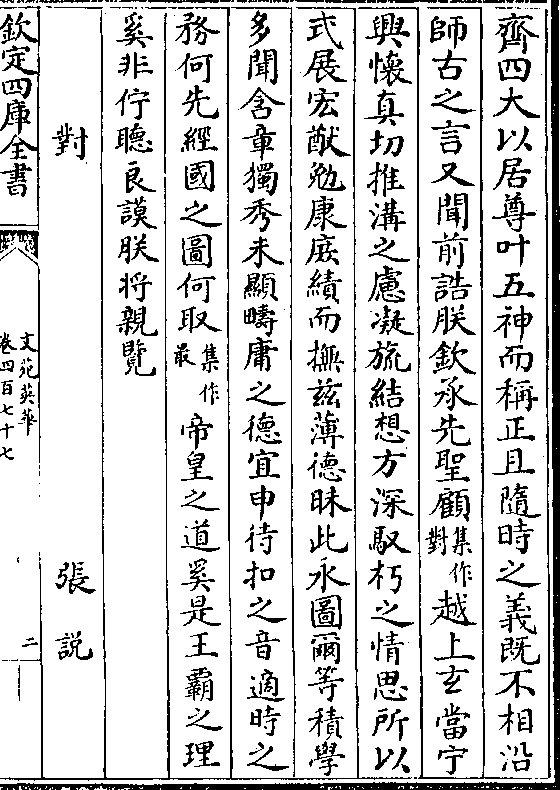 齊四大以居尊叶五神而稱正且隨時之義既不相沿
師古之言又聞前誥朕欽承先聖顧集作對越上玄當宁
興懷真切推溝之慮凝旒結想方深馭朽之情思所以
式展宏猷勉康庶績而撫兹薄德昧此永圖爾等積學
多聞含章獨秀未顯疇庸之德宜申待扣之音適時之
務何先經國之圖何取集作最帝皇之道奚是王霸之理
奚非佇聽良謨朕将親覽
對 張説
欽定四庫全書
文苑英華
卷四百七十七
二